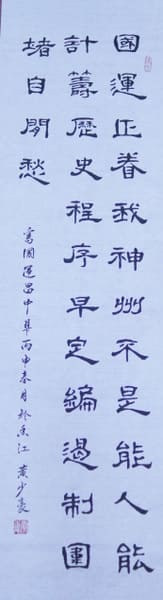 國運正眷我神州不是能人能
計籌歷史程序早定編遏制圍
堵自閒愁
寫國運昌中華丙申春月於香江 黄少豪